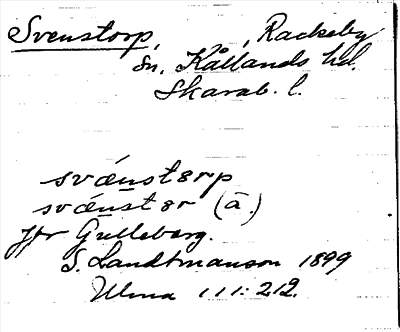 Svenstorp, Rackeby
sn. Kållands hd.
Skarab. l.
svǽnstɘrp
svǽnstɘr (ā.)
Jfr Gulleberg.
S. Landtmanson 1899
Ulma 111:212.